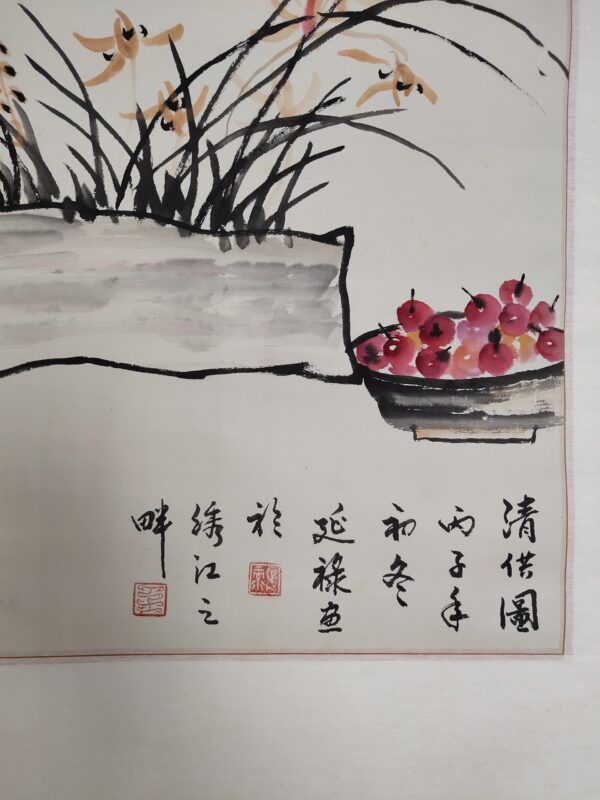 清供圖
丙子年
初冬
延祿画
於
绣江之
畔